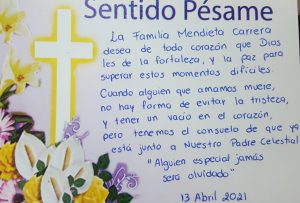 Sentido Pésame
La Familia Mendieta Carrera
desea de todo corazón que Dios
les de la fortaleza, y la paz para
superar estos momentos difíciles.
Cuando alguien que amamos muere,
no hay forma de evitar la tristeza,
y tener un vacío en el corazón,
pero tenemos el consuelo de que ya
está junto a Nuestro Padre Celestial
"Alguien especial jamás
será olvidado"
13 Abril 2021